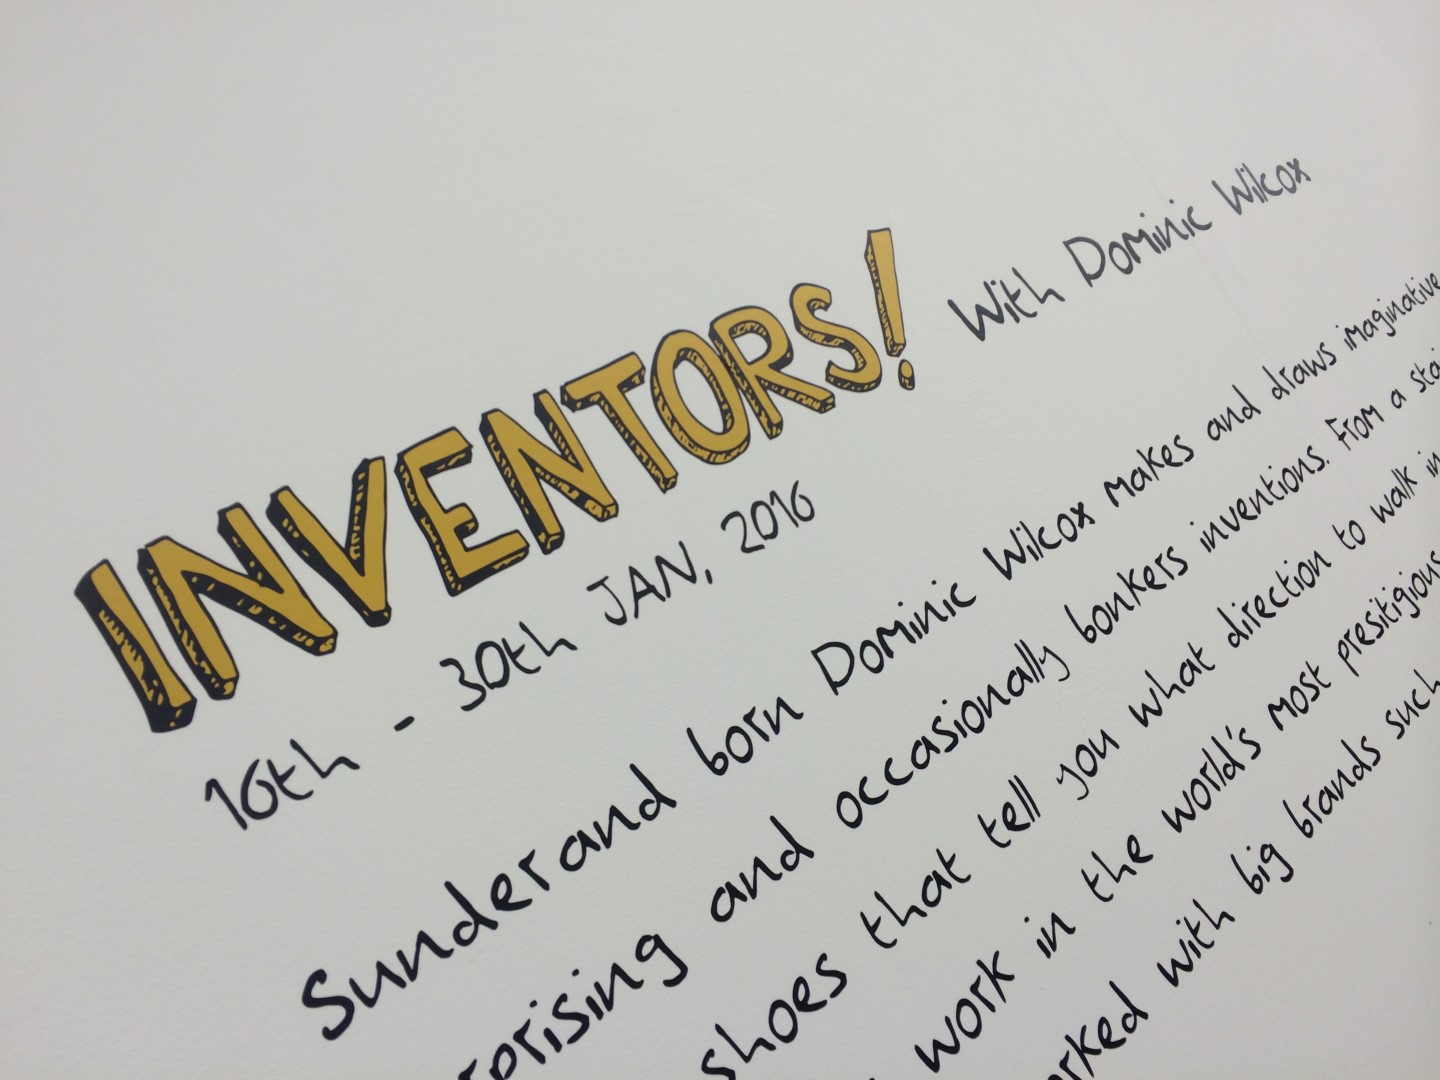 INVENTORS! With Dominic Wilcox
16th - 30th JAN, 2016
Sunderand born Dominic Wilcox makes and draws imaginative
prising and occasionally bonkers inventions. From a stai
shoes that tell you what direction to walk in
work in the world's most presitigious
orked with big brands such